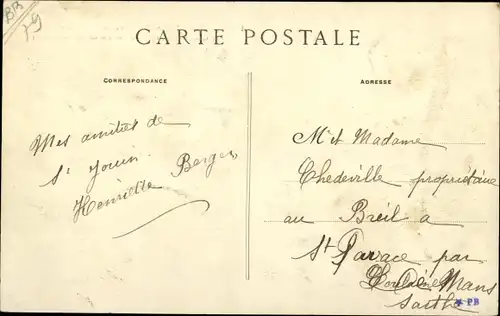 BB
79
CARTE POSTALE
CORRESPONDANCE
ADRESSE
Mes amitiés de
St Jouin
Henriette Berger
M et Madame
Chedeville propriétaire
au Breil a
St Parrace par
Le Mans
Sarthe
PB